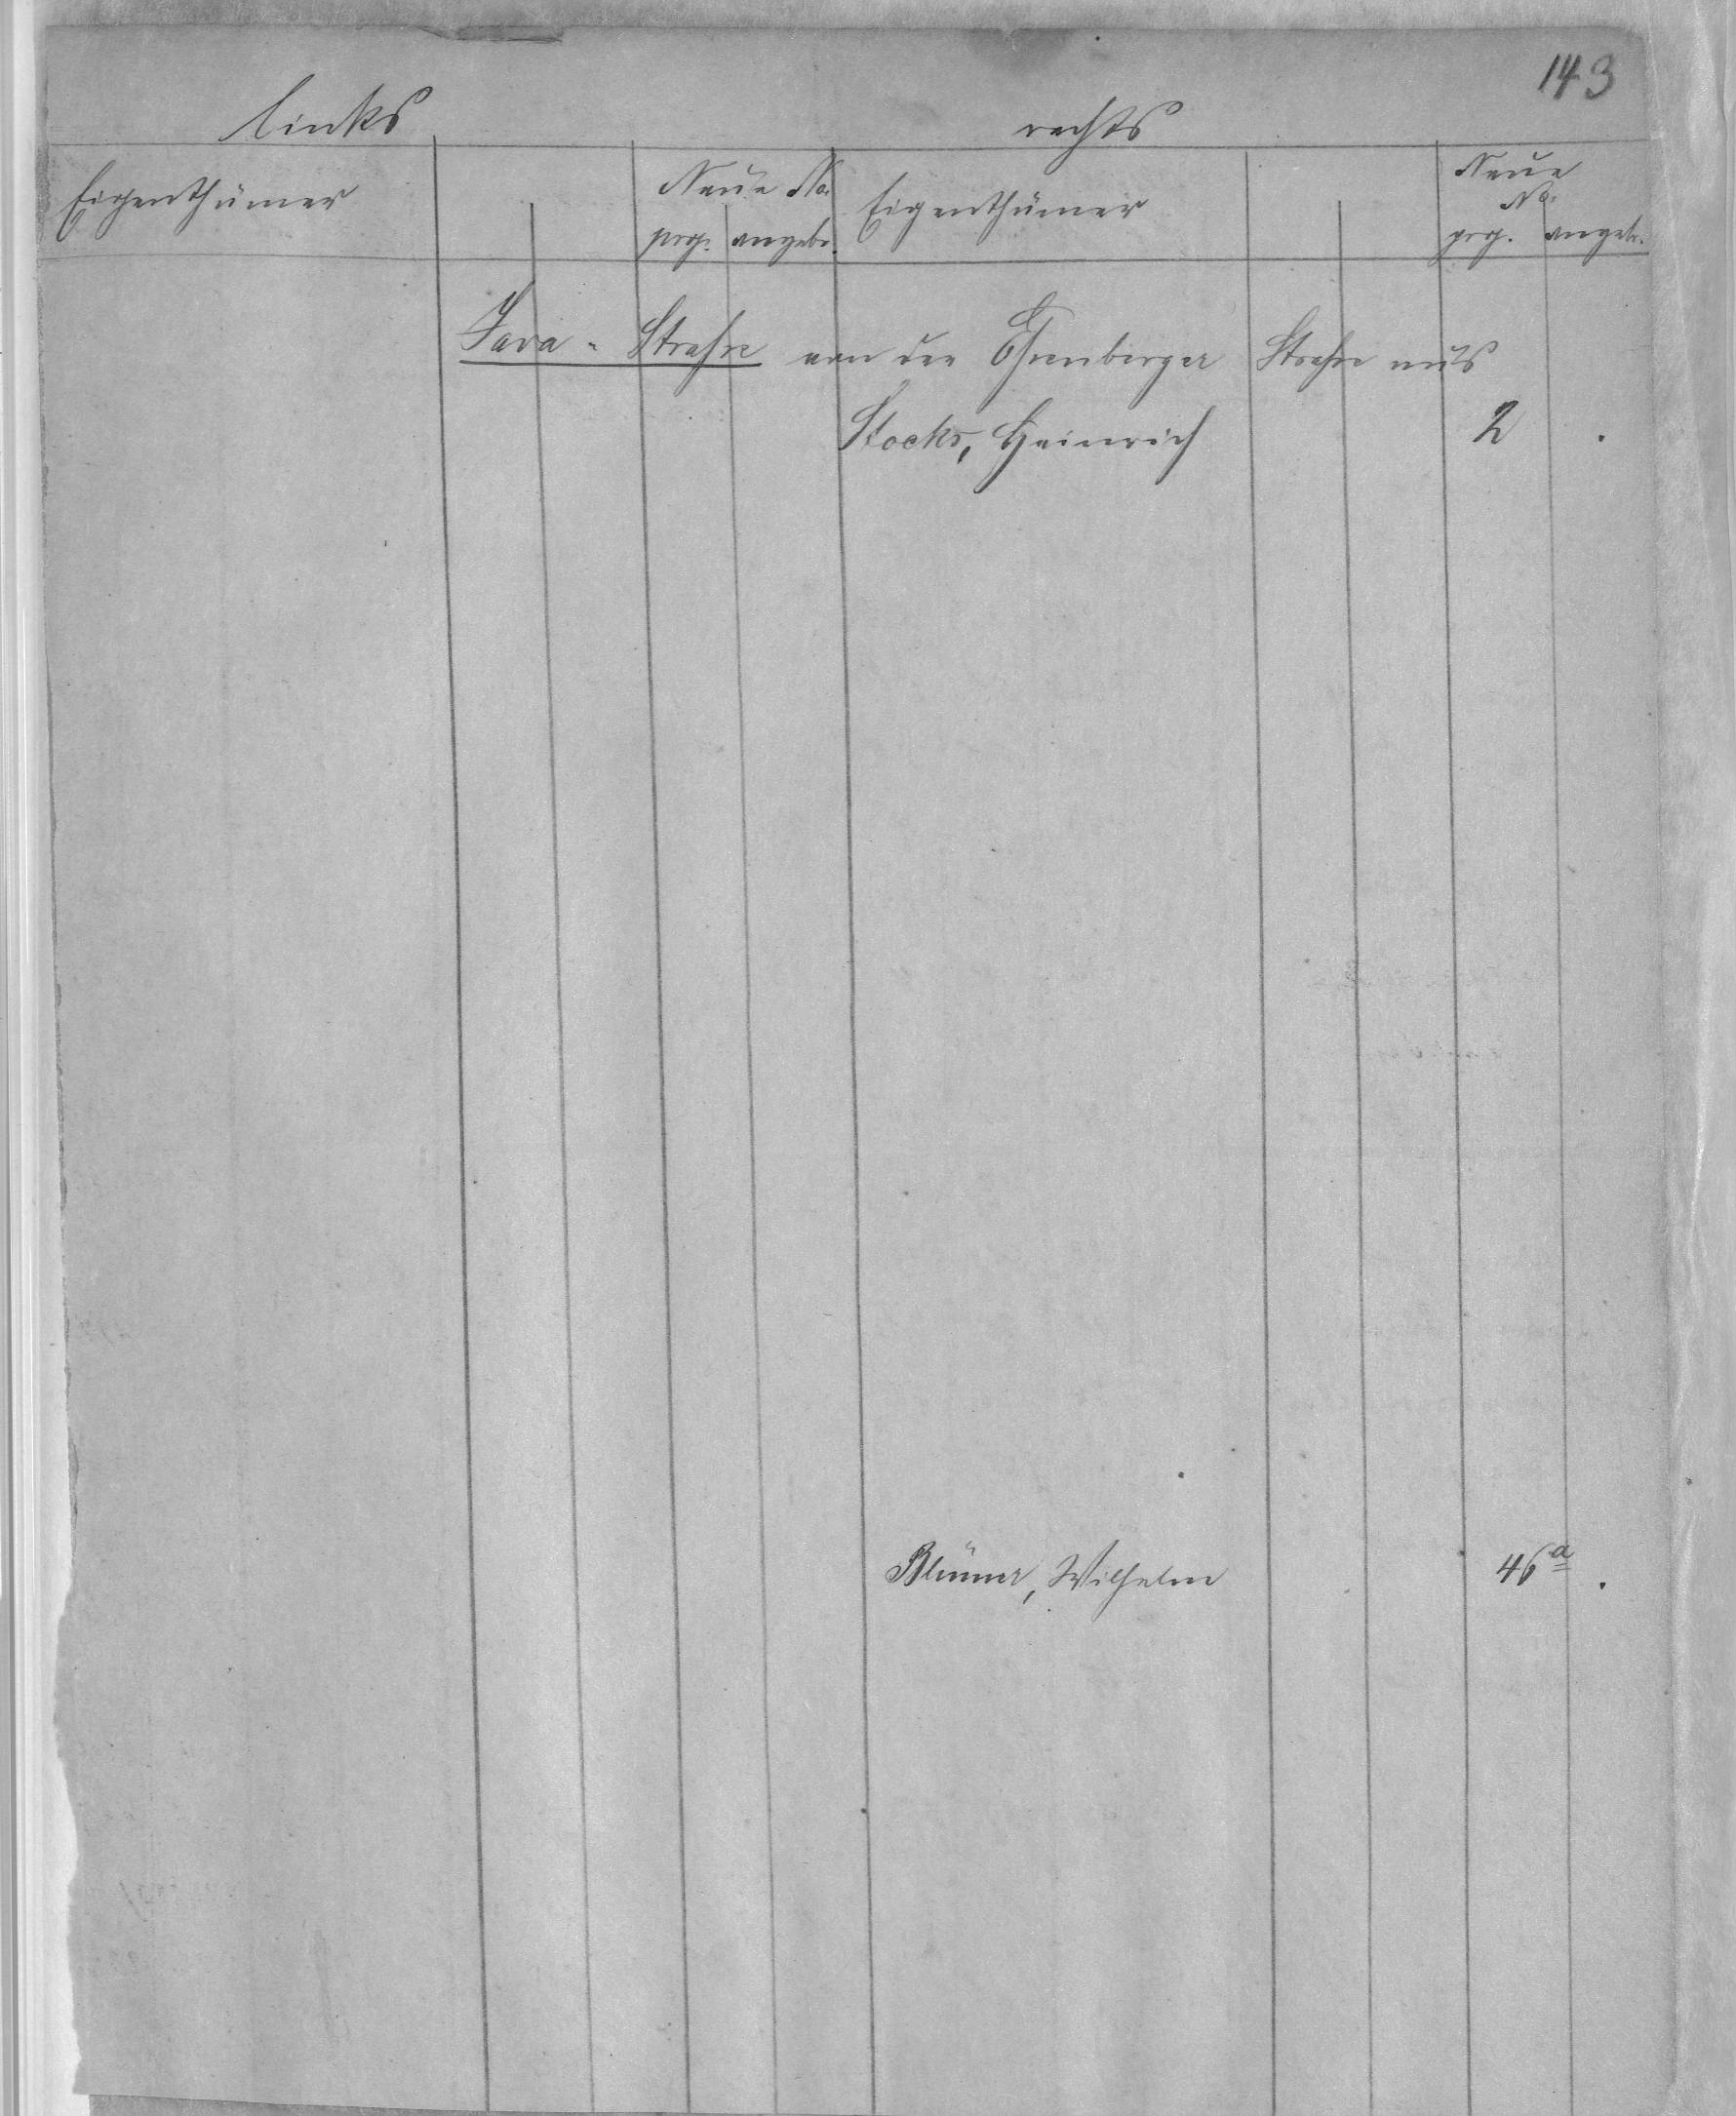 143
links
rechts
Eigenthümer
Neue No.
prg. angebr.
Eigenthümer
Neue No.
prg. angebr.
Java-Straße von der Essenberger Straße aus
Stocks, Heinrich 2 .
Blümer, Wilhelm 46a .